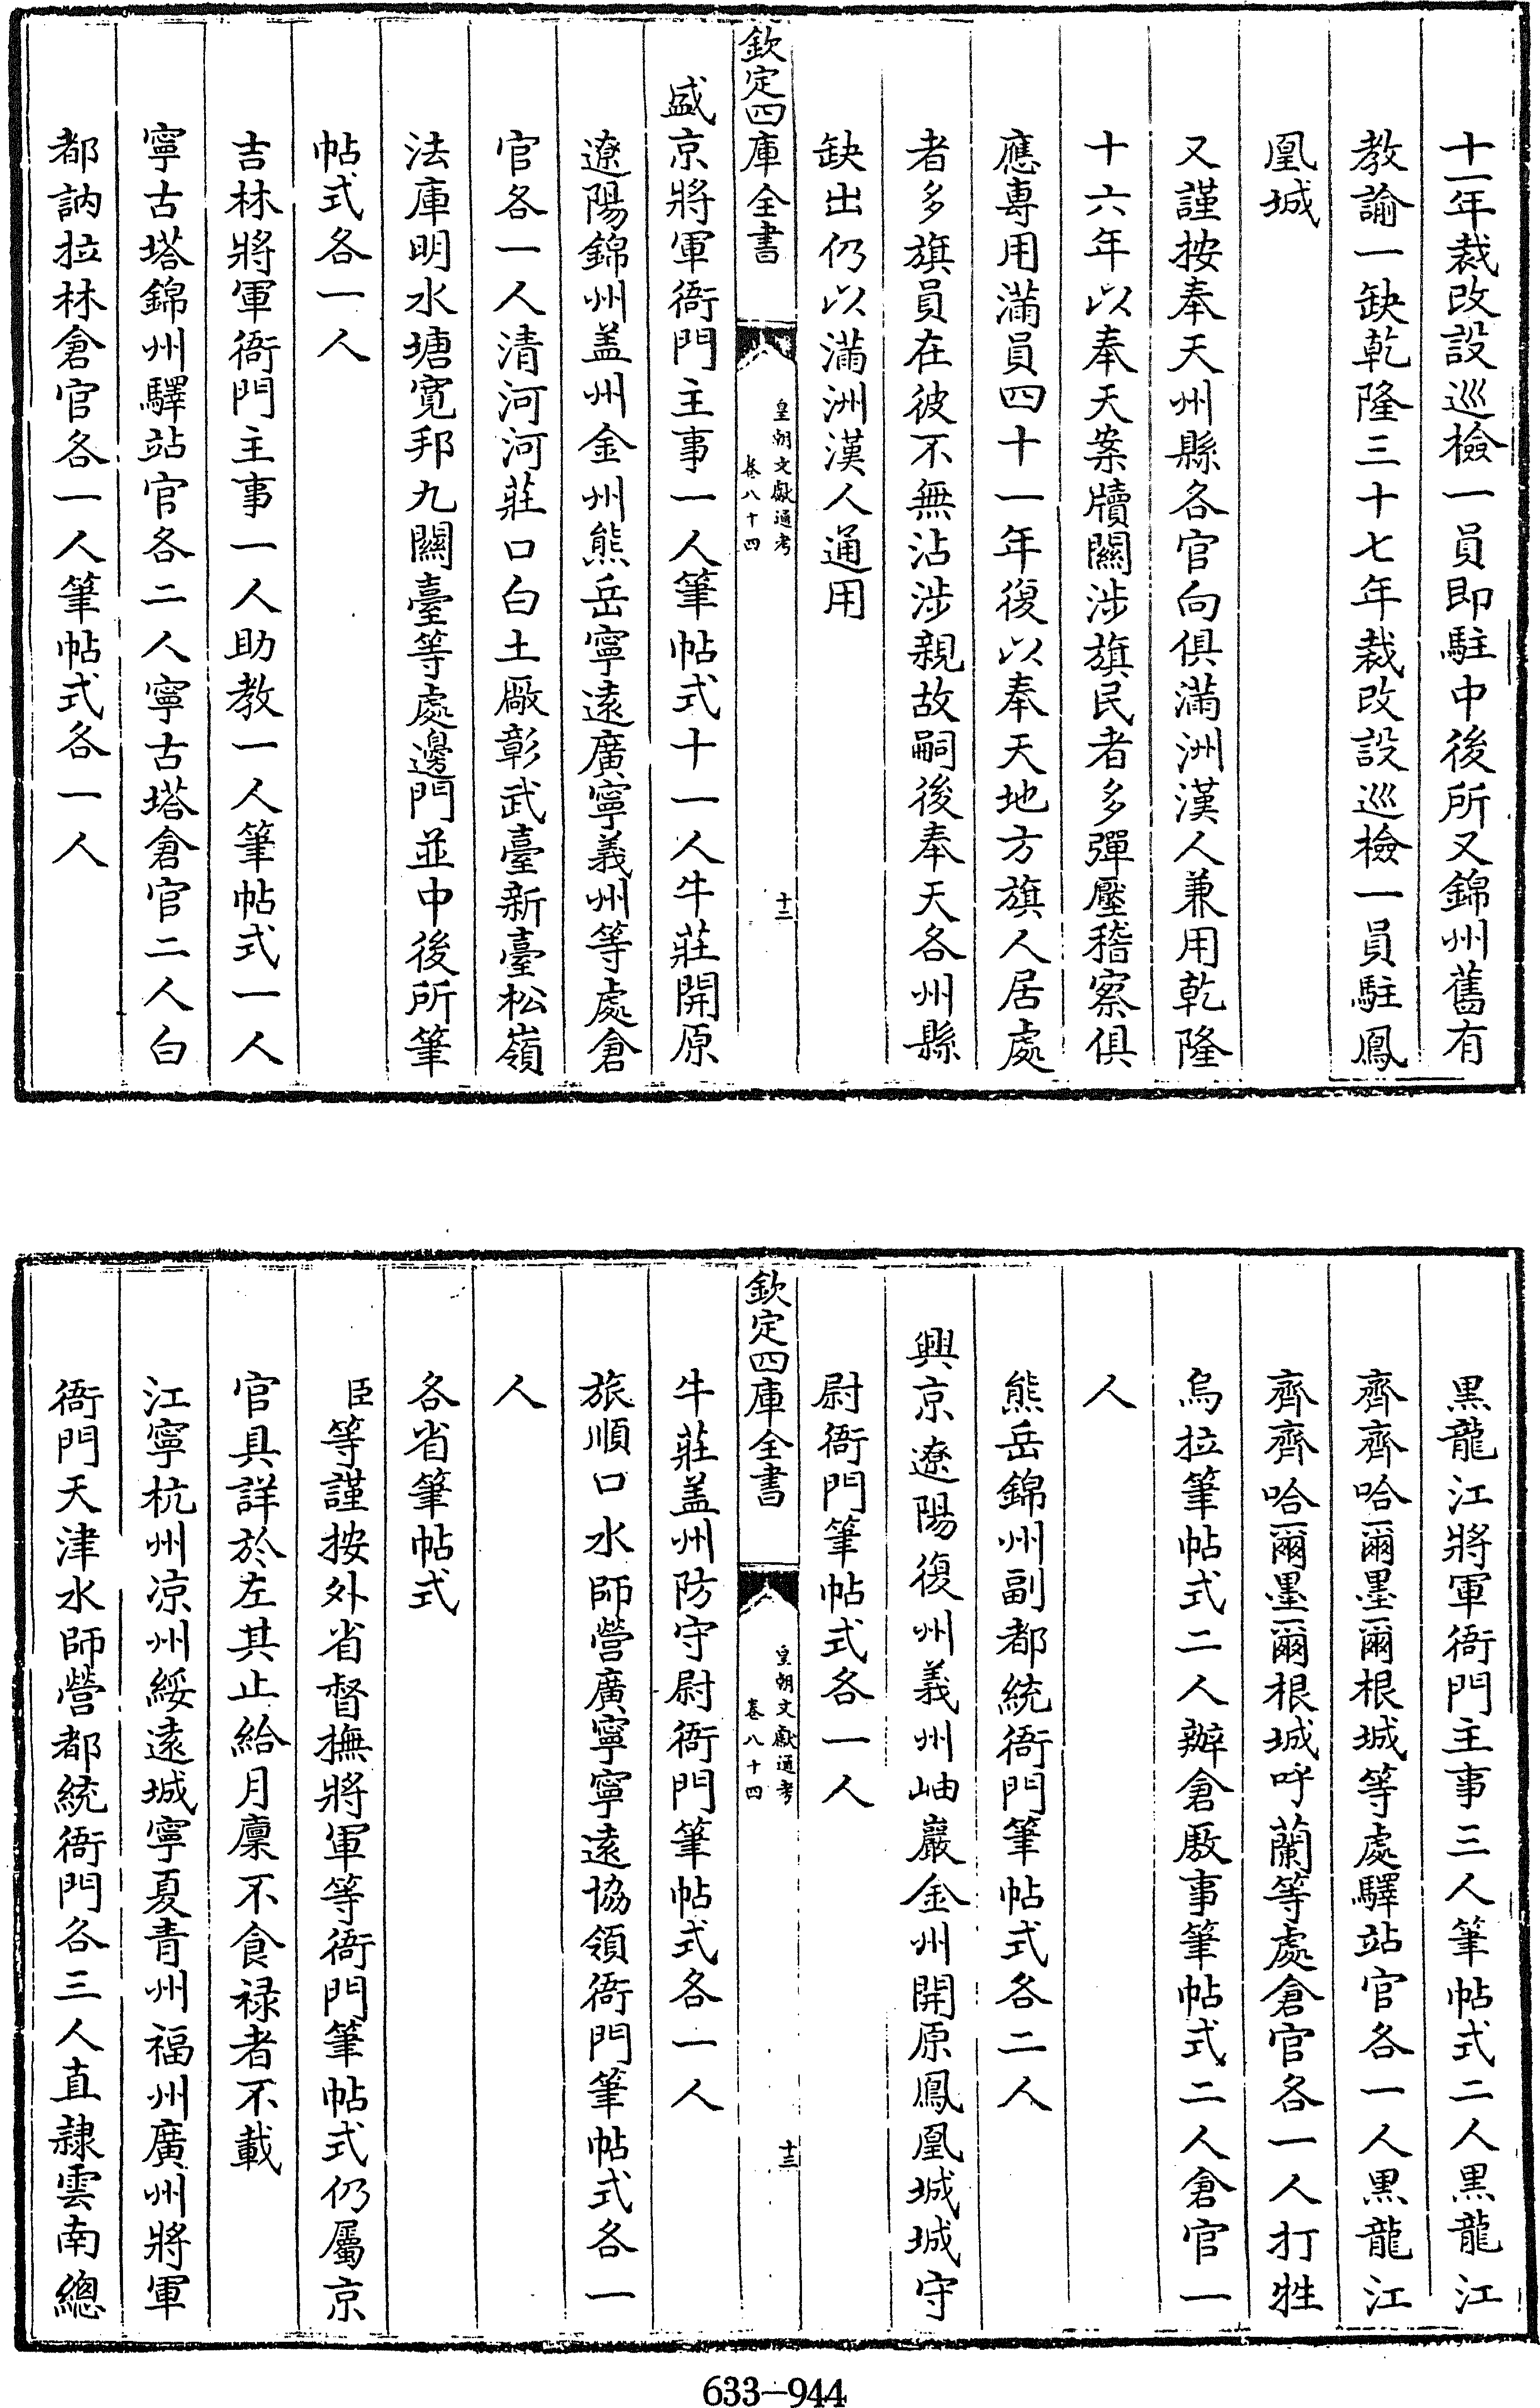 十一年裁改設巡檢一員即駐中後所又錦州舊有
教諭一缺乾隆三十七年裁改設巡檢一員駐鳳
凰城
又謹按奉天州縣各官向俱滿洲漢人兼用乾隆
十六年以奉天案牘關涉旗民者多彈壓稽察俱
應專用滿員四十一年復以奉天地方旗人居處
者多旗員在彼不無沾涉親故嗣後奉天各州縣
缺出仍以滿洲漢人通用
欽定四庫全書
皇朝文獻通考
卷八十四
十二
盛京將軍衙門主事一人筆帖式十一人牛莊開原
遼陽錦州盖州金州熊岳寧遠廣寧義州等處倉
官各一人清河河莊口白土厰彰武臺新臺松嶺
法庫明水塘寬邦九關臺等處邊門並中後所筆
帖式各一人
吉林將軍衙門主事一人助教一人筆帖式一人
寧古塔錦州驛站官各二人寧古塔倉官二人白
都訥拉林倉官各一人筆帖式各一人
黑龍江將軍衙門主事三人筆帖式二人黑龍江
齊齊哈爾墨爾根城等處驛站官各一人黑龍江
齊齊哈爾墨爾根城呼蘭等處倉官各一人打牲
烏拉筆帖式二人辦倉厫事筆帖式二人倉官一
人
熊岳錦州副都統衙門筆帖式各二人
興京遼陽復州義州岫巖金州開原鳳凰城城守
尉衙門筆帖式各一人
欽定四庫全書
皇朝文獻通考
卷八十四
十三
牛莊盖州防守尉衙門筆帖式各一人
旅順口水師營廣寧寧遠協領衙門筆帖式各一
人
各省筆帖式
臣等謹按外省督撫將軍等衙門筆帖式仍屬京
官具詳於左其止給月廩不食禄者不載
江寧杭州凉州綏遠城寧夏青州福州廣州將軍
衙門天津水師營都統衙門各三人直隷雲南總
633-944